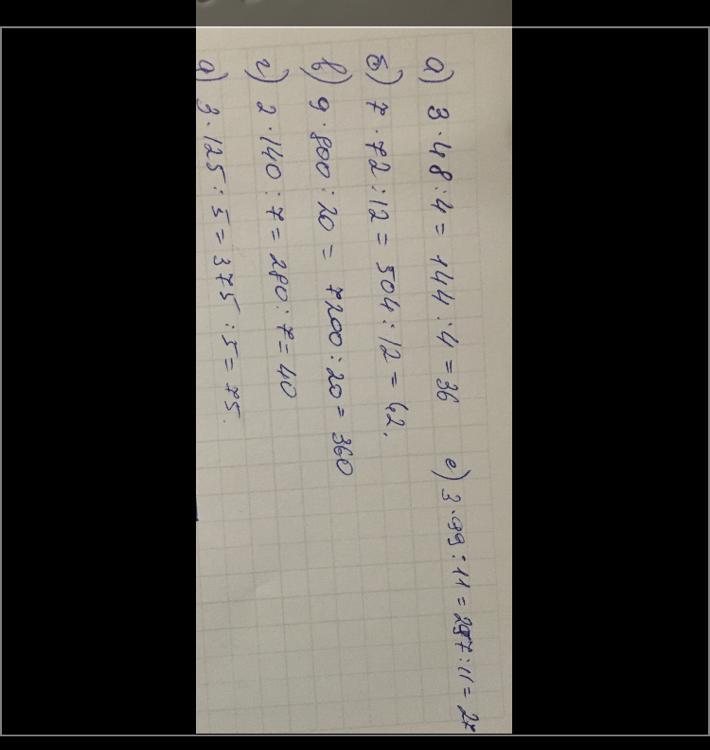 а) 3·48:4= 144:4=36
е) 3·99:11=297:11=27
б) 7·72:12= 504:12=42.
в) 9·800:20= 7200:20=360
г) 2·140:7= 280:7=40
д) 3·125:5=375:5=75.